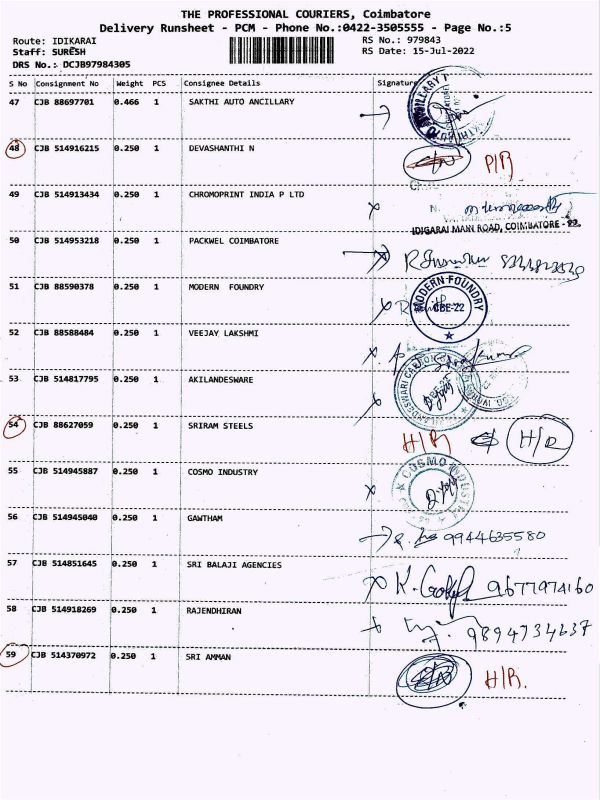 THE PROFESSIONAL COURIERS, Coimbatore
Delivery Runsheet - PCM - Phone No.:0422-3505555 - Page No.:5
Route: IDIKARAI RS No.: 979843
Staff: SURESH RS Date: 15-Jul-2022
DRS No.: DCJB97984305
S No Consignment No Weight PCS Consignee Details Signature
47 CJB 88697701 0.466 1 SAKTHI AUTO ANCILLARY
48 CJB 514916215 0.250 1 DEVASHANTHI N P/R
49 CJB 514913434 0.250 1 CHROMOPRINT INDIA P LTD
IDIGARAI MAIN ROAD, COIMBATORE - 22.
50 CJB 514953218 0.250 1 PACKWEL COIMBATORE
51 CJB 88590378 0.250 1 MODERN FOUNDRY MODERN FOUNDRY CBE-22
52 CJB 88588484 0.250 1 VEEJAY LAKSHMI
53 CJB 514817795 0.250 1 AKILANDESWARE
54 CJB 88627059 0.250 1 SRIRAM STEELS H/R H/R
55 CJB 514945887 0.250 1 COSMO INDUSTRY COSMO INDUSTRY
56 CJB 514945040 0.250 1 GAWTHAM 9944635580
57 CJB 514851645 0.250 1 SRI BALAJI AGENCIES 9677974160
58 CJB 514918269 0.250 1 RAJENDHIRAN 9894734637
59 CJB 514370972 0.250 1 SRI AMMAN H/R.